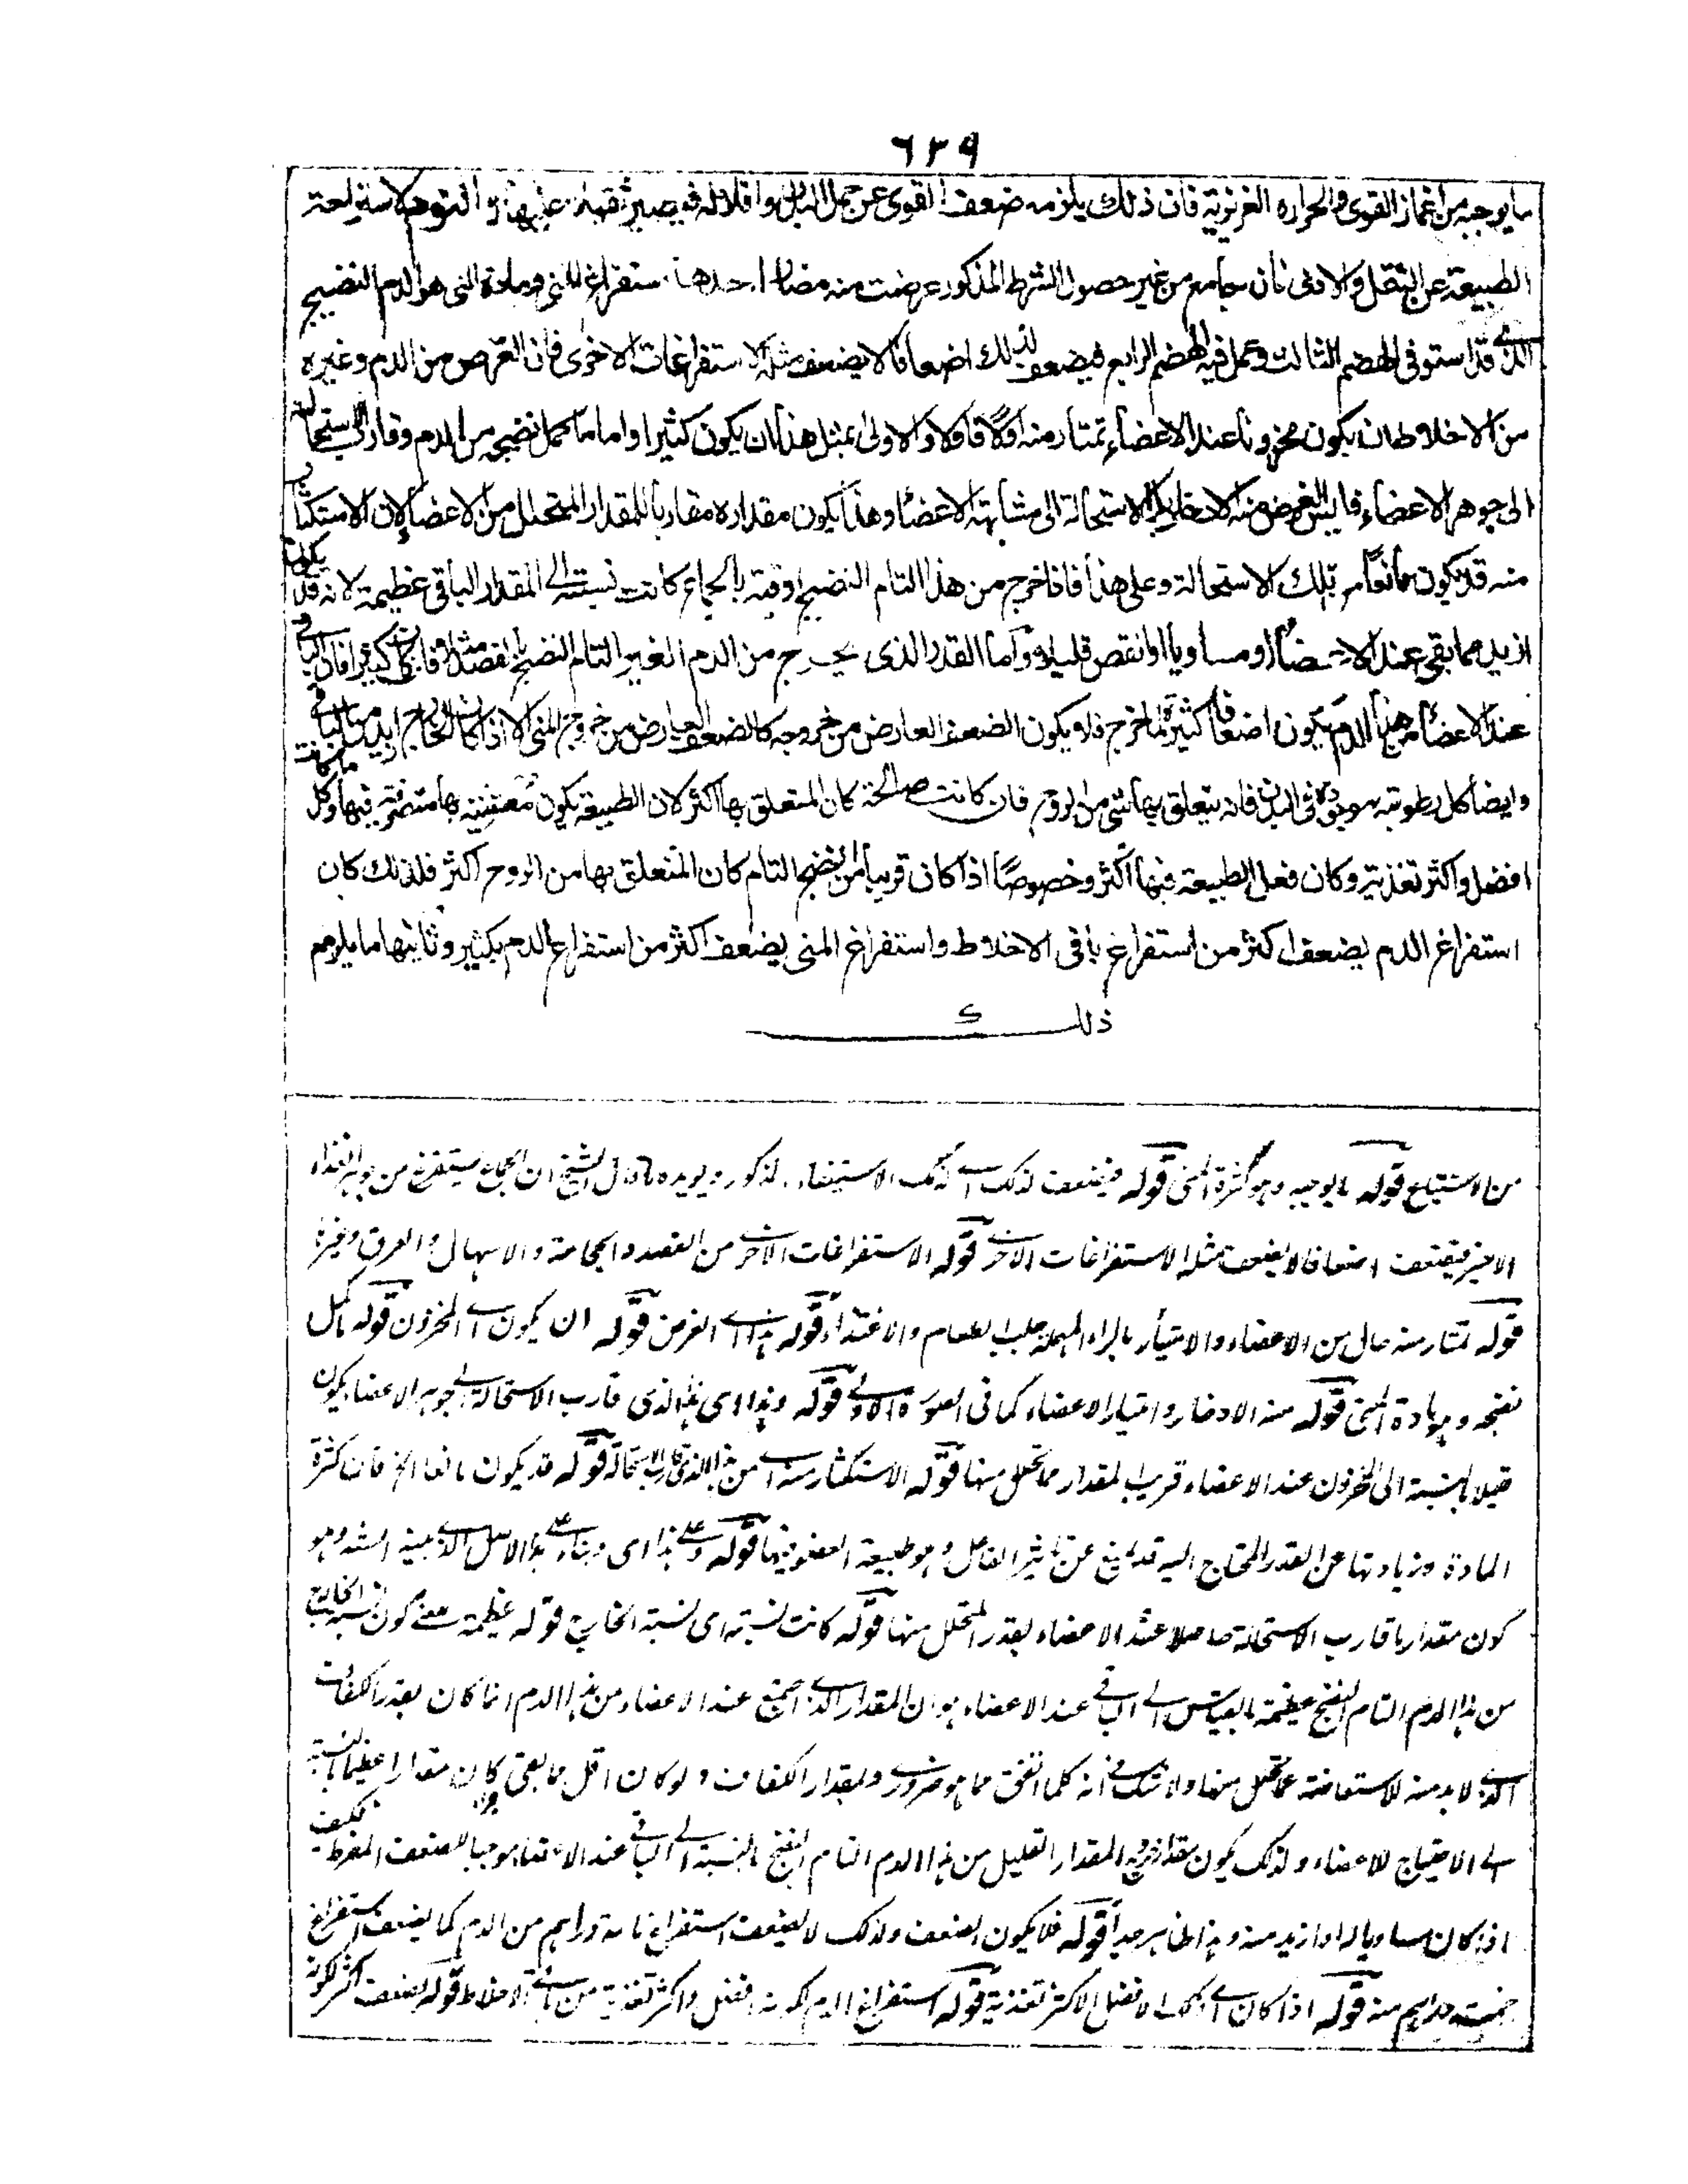 ٦٣٩
ما يوجبه من انغمار القوى والحرارة الغريزية فان ذلك يلزمه ضعف القوى عن حمل البدن واقلاله فيصير ثقيلا عليها
الطبيعة عن الثقل والاذى فان جامع من غير حصول الشرط المذكور عرضت منه مضار احدها استفراغ المنى ومادة المنى هو الدم النضيج
الذى قد استوفى الهضم الثالث وعمل فيه الهضم الرابع فيضعف لذلك اضعافا لا يضعف مثله الاستفراغات الاخرى فان الغرض من الدم وغيره
من الاخلاط ان يكون مخزونا عند الاعضاء تمتار منه اولا فاولا والاولى بمثل هذا ان يكون كثيرا واما ما كمل نضجه من الدم وقارب الاستحالة
الى جوهر الاعضاء فليس الغرض منه الادخار بل الاستحالة الى مشابهة الاعضاء وهذا يكون مقداره مقاربا للمقدار المتحلل من الاعضاء لان الاستكثار
منه قد يكون مانعا من تلك الاستحالة وعلى هذا فاذا خرج من هذا التام النضج اوقية بالجماع كانت نسبته الى المقدار الباقى عظيمة لانه قد يكون
ازيد مما بقى عند الاعضاء او مساويا او انقص قليلا واما القدر الذى يخرج من الدم الغير التام النضج بالفصد مثلا وان كان كثيرا فان الباقى
عند الاعضاء من هذا الدم يكون اضعافا كثيرة لما خرج فلا يكون الضعف العارض من خروجه كالضعف العارض من خروج المنى الا اذا كان الخارج ازيد من الباقى
وايضا كل رطوبة موجودة فى البدن فانه يتعلق بها شئ من الروح فان كانت صالحة كان المتعلق بها اكثر لان الطبيعة يكون معتنية بها متصرفة فيها وكل ما كانت
افضل واكثر تغذية وكان فعل الطبيعة فيها اكثر وخصوصا اذا كان قريبا من النضج التام كان المتعلق بها من الروح اكثر فلذلك كان
استفراغ الدم يضعف اكثر من استفراغ باقى الاخلاط واستفراغ المنى يضعف اكثر من استفراغ الدم بكثير وثانيها ما يلزم
ذلك
من الاستتباع قوله ما يوجبه وهو كثرة المنى قوله فيضعف لذلك اى لذلك الاستيفاء المذكور ويؤيده ما قال الشيخ ان الجماع يستفرغ من جوهر الغذاء
الاخير فيضعف اضعافا لا يضعف مثله الاستفراغات الاخر قوله الاستفراغات الاخرى من الفصد والحجامة والاسهال والعرق وغيرها
قوله تمتار منه حال من الاعضاء والامتيار بالراء المهملة جلب الطعام والاغتذاء قوله بهذا اى الغرض قوله ان يكون اى المخزون قوله ما كمل
نضجه وهو مادة المنى قوله منه الادخار وامتيار الاعضاء كما فى الصورة الاولى قوله وهذا اى هذا الذى قارب الاستحالة الى جوهر الاعضاء يكون
قليلا بالنسبة الى المخزون عند الاعضاء قريب المقدار مما تحلل منها قوله الاستكثار منه اى من هذا الذى قارب الاستحالة قوله قد يكون مانعا الخ فان كثرة
المادة وزيادتها عن القدر المحتاج اليه قد يمنع عن تاثير الفاعل وهو طبيعة العضو فيها قوله وعلى هذا اى وبناء على هذا الاصل الذى بينه الشه وهو
كون مقدار ما قارب الاستحالة حاصلا عند الاعضاء بقدر المتحلل منها قوله كانت نسبته اى نسبة الخارج قوله عظيمة معنى كون نسبة الخارج
من هذا الدم التام النضج عظيمة بالقياس الى الباقى عند الاعضاء هو ان المقدار الذى اجتمع عند الاعضاء من هذا الدم انما كان بقدر الكفاف
الذى لا بد منه للاستعاضة عما تحلل منها ولا شك فى انه كلما انفق مما هو ضرورى ولمقدار الكفاف ولو كان اقل مما بقى كان مقدارا عظيما بالنسبة
الى الاحتياج للاعضاء ولذلك يكون مقدار خروج المقدار القليل من هذا الدم التام النضج بالنسبة الى الباقى عند الاعضاء موجبا للضعف المفرط فكيف
اذا كان مساويا له او ازيد منه وهذا ظاهر جدا قوله فلا يكون الضعف ولذلك لا يضعف استفراغ مائة دراهم من الدم كما يضعف استفراغ
خمسة دراهم منه قوله اذا كان اى ذلك الافضل الاكثر تغذية قوله استفراغ الدم لكونه افضل واكثر تغذية من باقى الاخلاط قوله يضعف اكثر لكونه